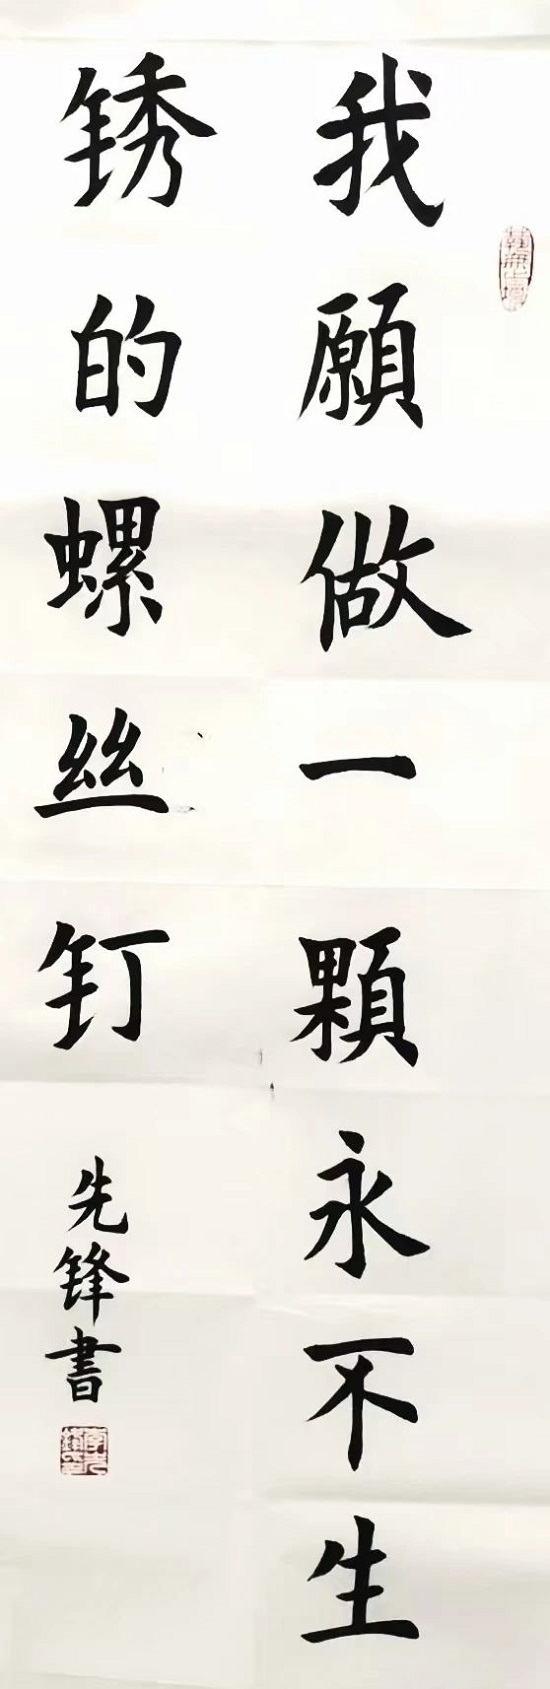 我願做一顆永不生
锈的螺丝钉
先锋書